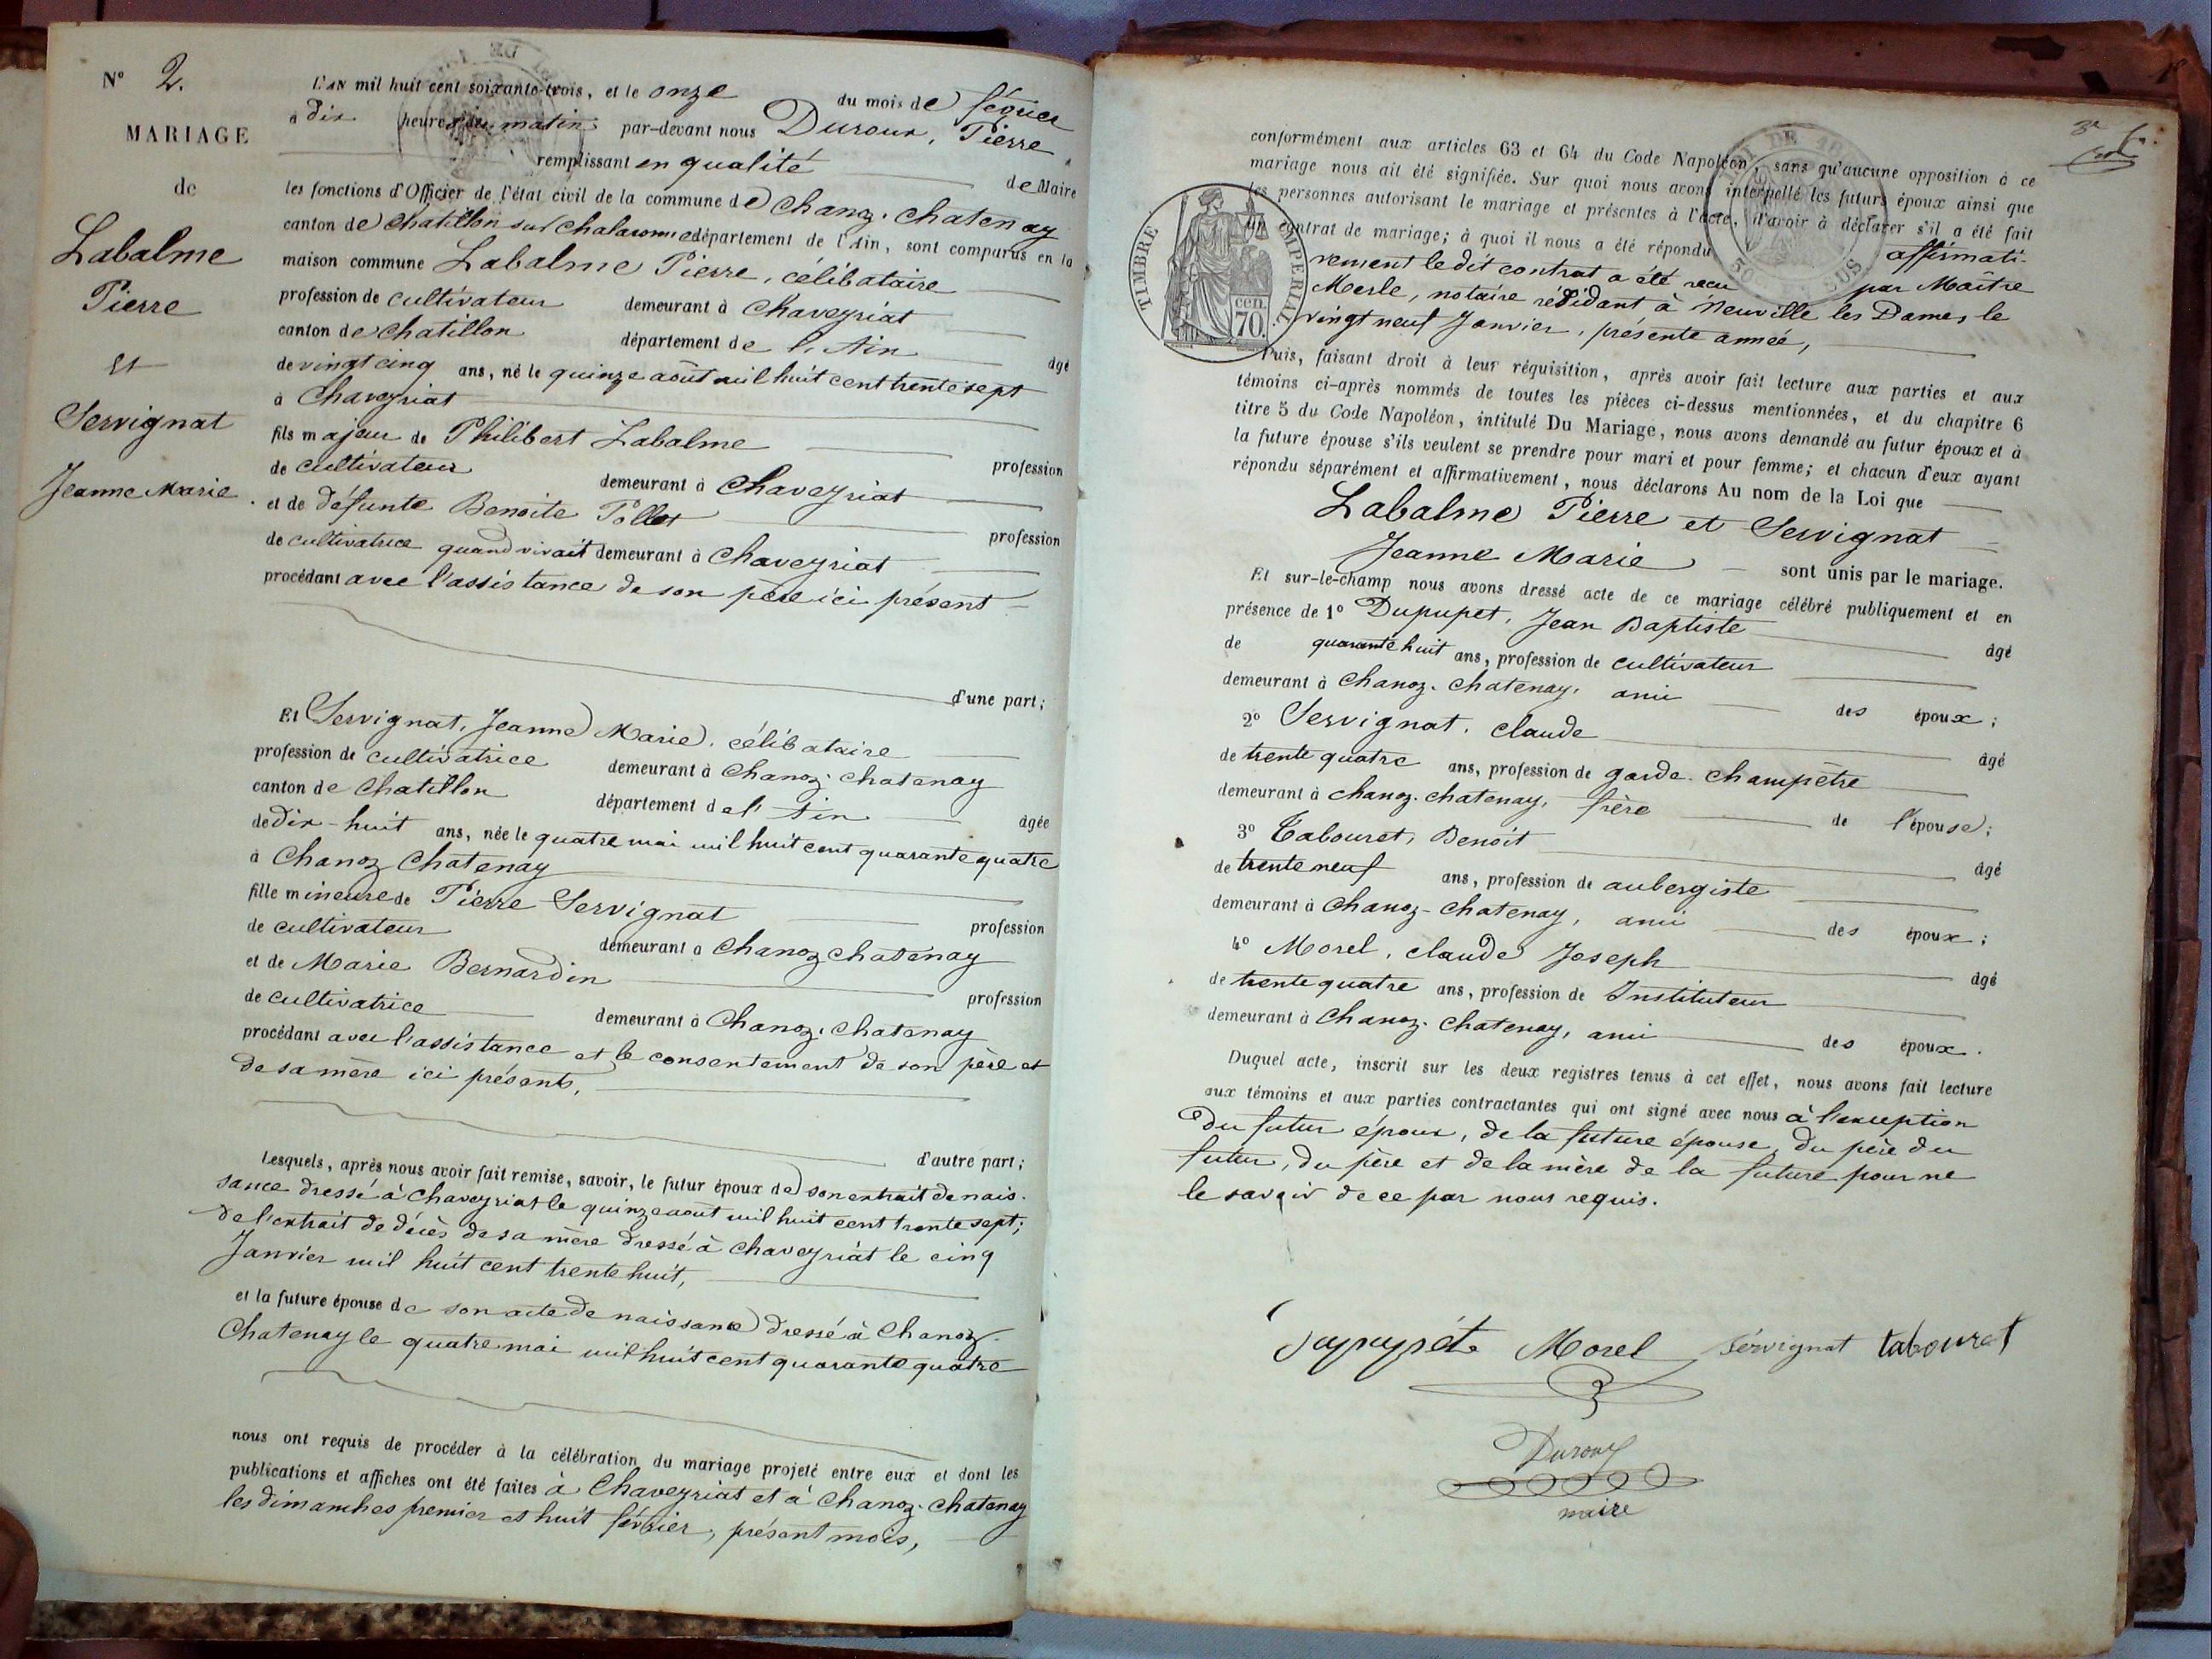 N° 2.
MARIAGE
de
Labalme
Pierre
et
Servignat
Jeanne Marie.
L'AN mil huit cent soixante-trois, et le onze du mois de février
à dix heures du matin par-devant nous Duroux, Pierre
remplissant en qualité de Maire
les fonctions d'Officier de l'état civil de la commune de Chanoz-Chatenay
canton de Chatillon sur Chalaronne département de l'Ain, sont comparus en la
maison commune Labalme Pierre, célibataire
profession de cultivateur demeurant à Chaveyriat
canton de Chatillon département de l'Ain âgé
de vingt cinq ans, né le quinze août mil huit cent trente sept
à Chaveyriat
fils majeur de Philibert Labalme profession
de cultivateur demeurant à Chaveyriat
et de défunte Benoite Pollet profession
de cultivatrice quand vivait demeurant à Chaveyriat
procédant avec l'assistance de son père ici présent
d'une part;
Et Servignat, Jeanne Marie, célibataire
profession de cultivatrice demeurant à Chanoz-Chatenay
canton de Chatillon département de l'Ain âgée
de dix-huit ans, née le quatre mai mil huit cent quarante quatre
à Chanoz Chatenay
fille mineure de Pierre Servignat profession
de cultivateur demeurant à Chanoz Chatenay
et de Marie Bernardin profession
de cultivatrice demeurant à Chanoz-Chatenay
procédant avec l'assistance et le consentement de son père et
de sa mère ici présents,
d'autre part;
Lesquels, après nous avoir fait remise, savoir, le futur époux de son extrait de nais-
sance dressé à Chaveyriat le quinze aout mil huit cent trente sept;
de l'extrait de décès de sa mère dressé à Chaveyriat le cinq
Janvier mil huit cent trente huit,
et la future épouse de son acte de naissance dressé à Chanoz-
Chatenay le quatre mai mil huit cent quarante quatre
nous ont requis de procéder à la célébration du mariage projeté entre eux et dont les
publications et affiches ont été faites à Chaveyriat et à Chanoz-Chatenay
les dimanches premier et huit février, présent mois,
conformément aux articles 63 et 64 du Code Napoléon, sans qu'aucune opposition à ce
mariage nous ait été signifiée. Sur quoi nous avons interpellé les futurs époux ainsi que
les personnes autorisant le mariage et présentes à l'acte, d'avoir à déclarer s'il a été fait
un contrat de mariage; à quoi il nous a été répondu affirmati-
vement le dit contrat a été recu par Maître
Merle, notaire résidant à Neuville les Dames le
vingt neuf Janvier, présente année,
TIMBRE IMPERIAL
70 cen
Puis, faisant droit à leur réquisition, après avoir fait lecture aux parties et aux
témoins ci-après nommés de toutes les pièces ci-dessus mentionnées, et du chapitre 6
titre 5 du Code Napoléon, intitulé Du Mariage, nous avons demandé au futur époux et à
la future épouse s'ils veulent se prendre pour mari et pour femme; et chacun d'eux ayant
répondu séparément et affirmativement, nous déclarons Au nom de la Loi que
Labalme Pierre et Servignat
Jeanne Marie sont unis par le mariage.
Et sur-le-champ nous avons dressé acte de ce mariage célébré publiquement et en
présence de 1° Dupupet, Jean Baptiste âgé
de quarante huit ans, profession de cultivateur
demeurant à Chanoz-Chatenay, ami des époux;
2° Servignat, Claude âgé
de trente quatre ans, profession de garde-champêtre
demeurant à Chanoz-Chatenay, frère de l'épouse;
3° Tabouret, Benoit âgé
de trente neuf ans, profession de aubergiste
demeurant à Chanoz-Chatenay, ami des époux;
4° Morel, Claude Joseph âgé
de trente quatre ans, profession de Instituteur
demeurant à Chanoz-Chatenay, ami des époux.
Duquel acte, inscrit sur les deux registres tenus à cet effet, nous avons fait lecture
aux témoins et aux parties contractantes qui ont signé avec nous à l'exception
du futur époux, de la future épouse, du père du
futur, du père et de la mère de la future pour ne
le savoir de ce par nous requis.
Dupupet Morel Servignat tabouret
Duroux
maire